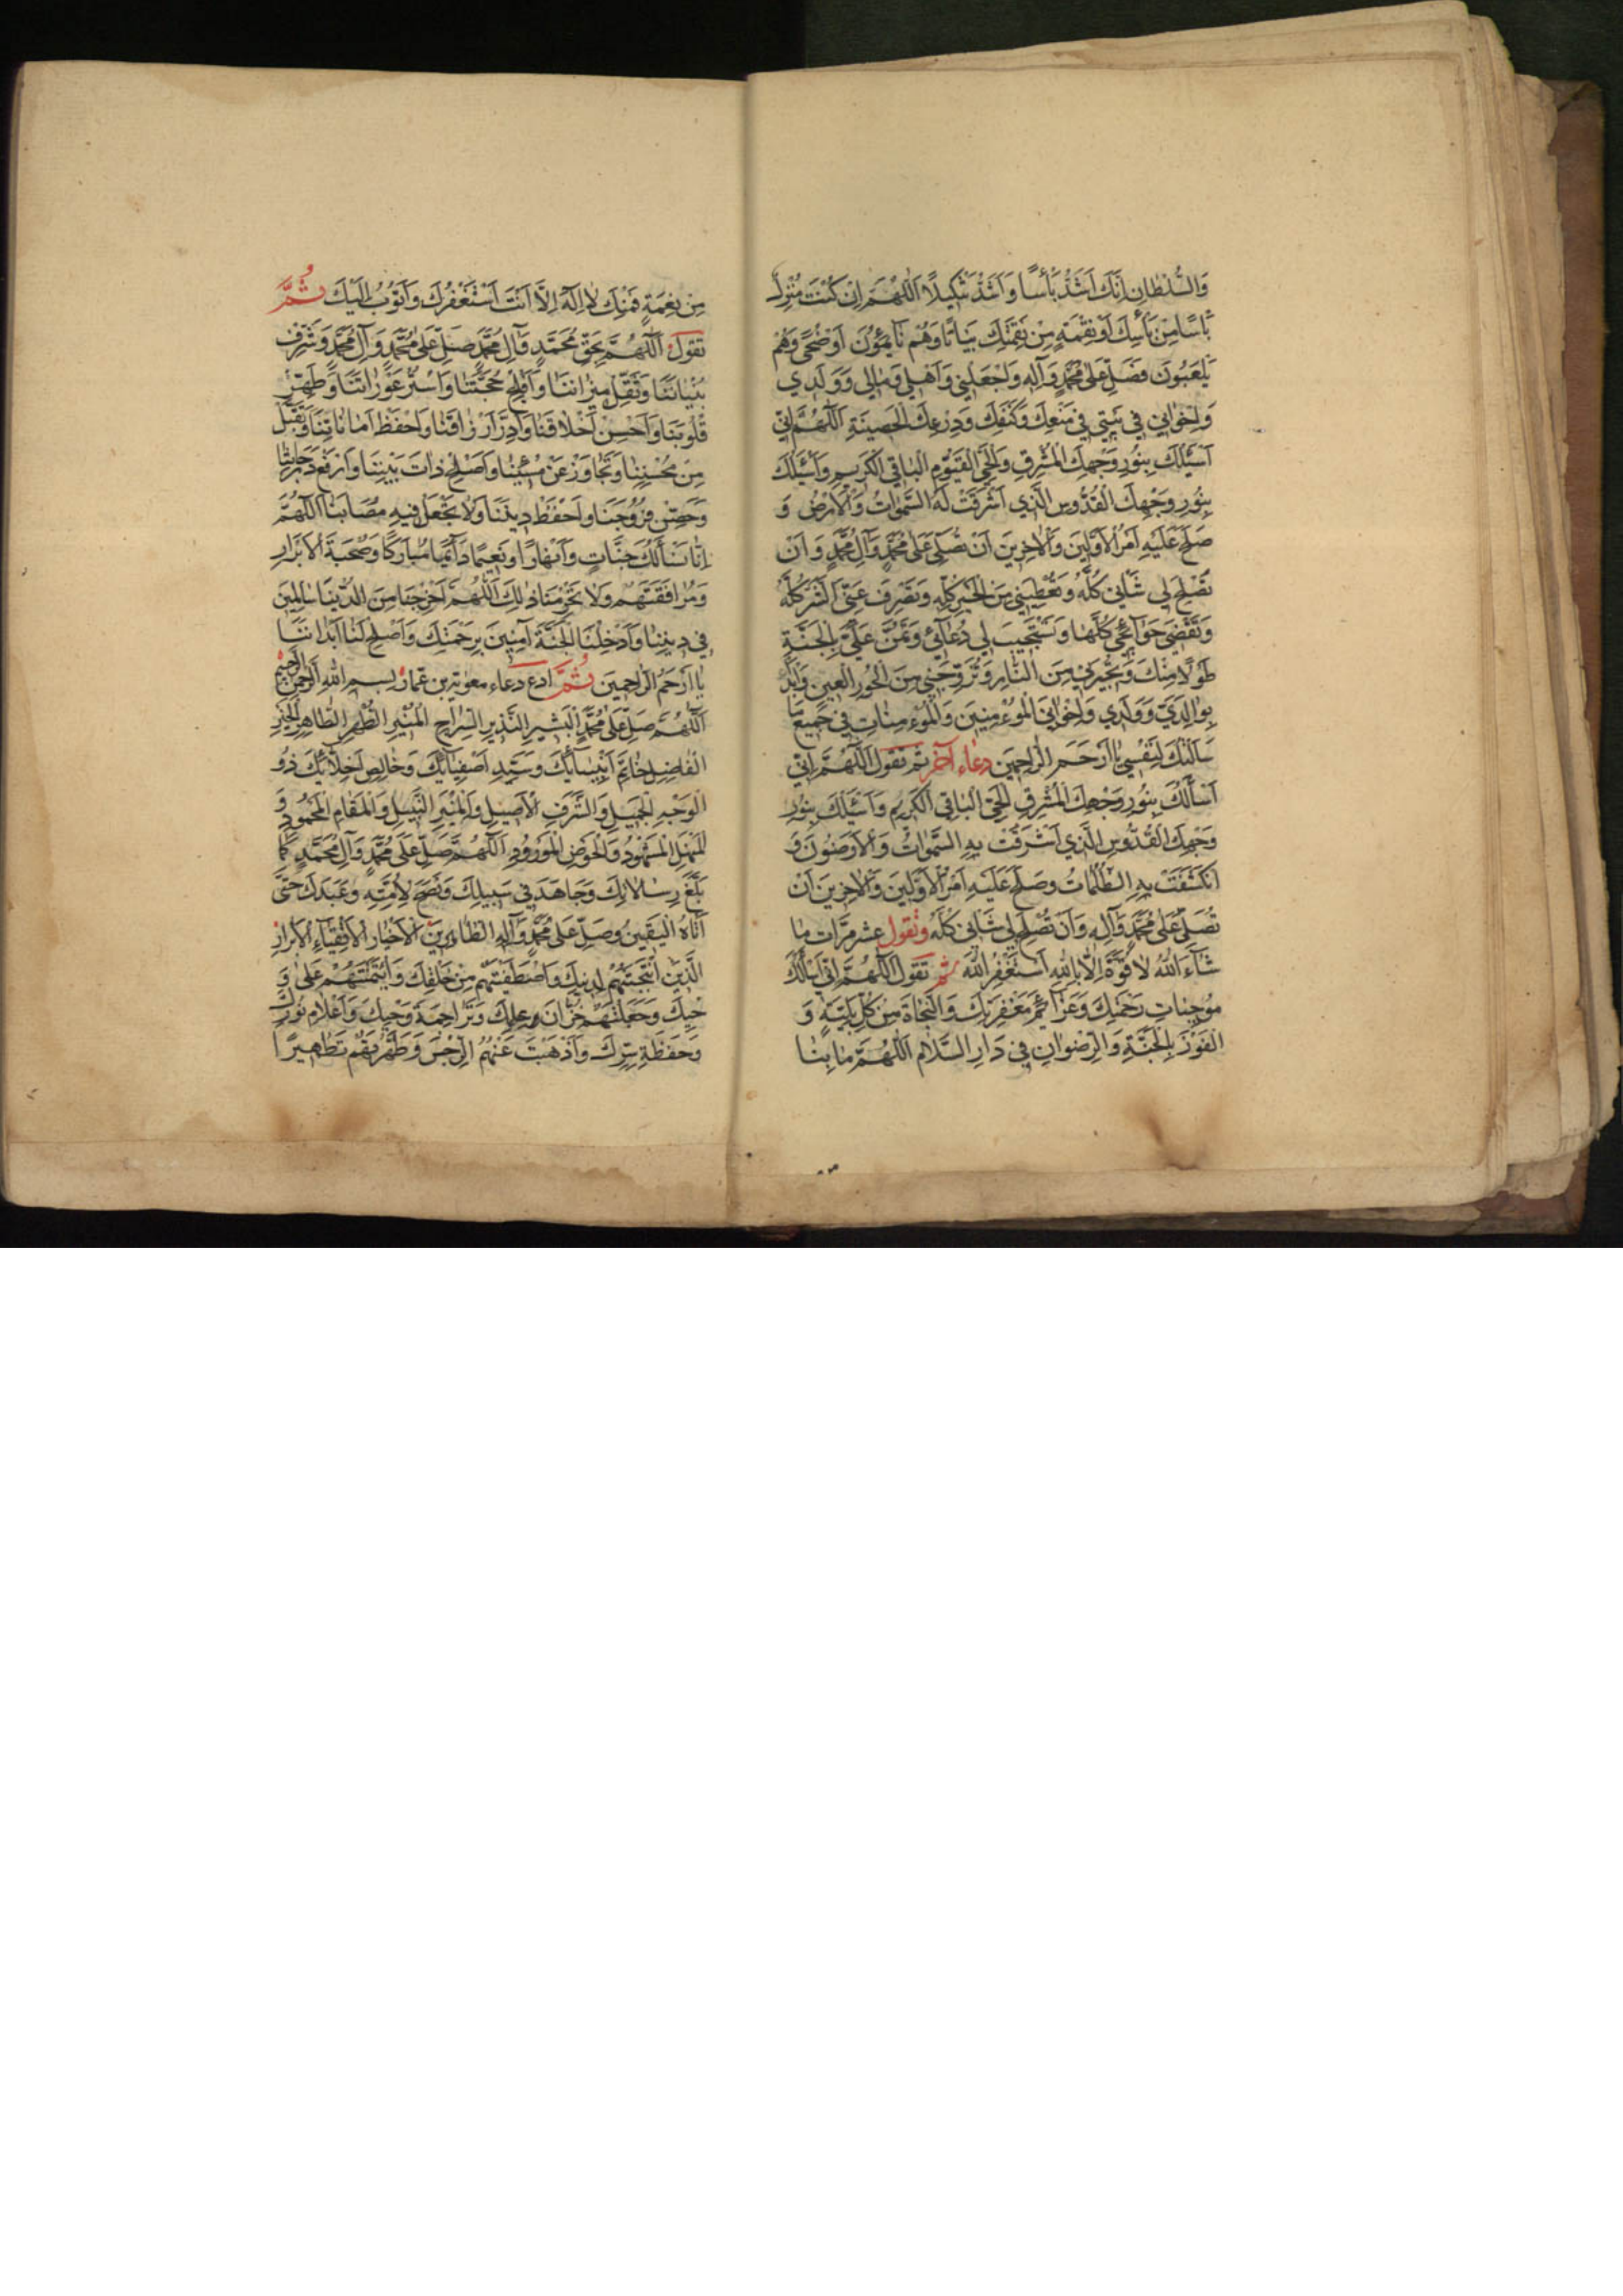 وَالسُّلْطَانِ اِنَّكَ اَشَدُّ بَأْسًا وَاَشَدُّ تَنْكِيلًا اَللّٰهُمَّ اِنْ كُنْتَ مُنْزِلَ
بَأْسًا مِنْ بَأْسِكَ اَوْ نِقْمَةٍ مِنْ نِقْمَتِكَ بَيَاتًا وَهُمْ نَائِمُونَ اَوْ ضُحًى وَهُمْ
يَلْعَبُونَ فَصَلِّ عَلىٰ مُحَمَّدٍ وَآلِهِ وَاجْعَلْنِي وَاَهْلِي وَمَالِي وَوَلَدِي
وَاِخْوَانِي فِي دِينِي فِي مَنْعِكَ وَكَنَفِكَ وَدِرْعِكَ الْحَصِينَةِ اَللّٰهُمَّ اِنِّي
اَسْئَلُكَ بِنُورِ وَجْهِكَ الْمُشْرِقِ وَالْحَيِّ الْقَيُّومِ الْبَاقِي الْكَرِيمِ وَاَسْئَلُكَ
بِنُورِ وَجْهِكَ الْقُدُّوسِ الَّذِي اَشْرَقَتْ لَهُ السَّمٰوَاتُ وَالْاَرْضُ وَ
صَلُحَ عَلَيْهِ اَمْرُ الْاَوَّلِينَ وَالْاٰخِرِينَ اَنْ تُصَلِّيَ عَلىٰ مُحَمَّدٍ وَآلِ مُحَمَّدٍ وَاَنْ
تُصْلِحَ لِي شَأْنِي كُلَّهُ وَتُعْطِيَنِي مِنَ الْخَيْرِ كُلِّهِ وَتَصْرِفَ عَنِّي الشَّرَّ كُلَّهُ
وَتَقْضِيَ حَوَائِجِي كُلَّهَا وَتَسْتَجِيبَ لِي دُعَائِي وَتَمُنَّ عَلَيَّ بِالْجَنَّةِ
طَوْلًا مِنْكَ وَتُجِيرَنِي مِنَ النَّارِ وَتُزَوِّجَنِي مِنَ الْحُورِ الْعِينِ وَابْدَأْ
بِوَالِدَيَّ وَوَلَدِي وَاِخْوَانِيَ الْمُؤْمِنِينَ وَالْمُؤْمِنَاتِ فِي جَمِيعِ مَا
سَاَلْتُكَ لِنَفْسِي يَا اَرْحَمَ الرَّاحِمِينَ دعاء آخر ثم تقول اَللّٰهُمَّ اِنِّي
اَسْأَلُكَ بِنُورِ وَجْهِكَ الْمُشْرِقِ الْحَيِّ الْبَاقِي الْكَرِيمِ وَاَسْئَلُكَ بِنُورِ
وَجْهِكَ الْقُدُّوسِ الَّذِي اَشْرَقَتْ بِهِ السَّمٰوَاتُ وَالْاَرَضُونَ وَ
انْكَشَفَتْ بِهِ الظُّلُمَاتُ وَصَلُحَ عَلَيْهِ اَمْرُ الْاَوَّلِينَ وَالْاٰخِرِينَ اَنْ
تُصَلِّيَ عَلىٰ مُحَمَّدٍ وَآلِهِ وَاَنْ تُصْلِحَ لِي شَأْنِي كُلَّهُ وتقول عشر مرّات مَا
شَاءَ اللهُ لَا قُوَّةَ اِلَّا بِاللهِ اَسْتَغْفِرُ اللهَ ثم تقول اَللّٰهُمَّ اِنِّي اَسْأَلُكَ
مُوجِبَاتِ رَحْمَتِكَ وَعَزَائِمَ مَغْفِرَتِكَ وَالنَّجَاةَ مِنْ كُلِّ بَلِيَّةٍ وَ
الْفَوْزَ بِالْجَنَّةِ وَالرِّضْوَانِ فِي دَارِ السَّلَامِ اَللّٰهُمَّ مَا بِنَا
مِنْ نِعْمَةٍ فَمِنْكَ لَا اِلٰهَ اِلَّا اَنْتَ اَسْتَغْفِرُكَ وَاَتُوبُ اِلَيْكَ ثُمَّ
تقول اَللّٰهُمَّ بِحَقِّ مُحَمَّدٍ وَآلِ مُحَمَّدٍ صَلِّ عَلىٰ مُحَمَّدٍ وَآلِ مُحَمَّدٍ وَشَرِّفْ
بُنْيَانَنَا وَثَقِّلْ مِيزَانَنَا وَاَفْلِجْ حُجَّتَنَا وَاسْتُرْ عَوْرَاتِنَا وَطَهِّرْ
قُلُوبَنَا وَاَحْسِنْ اَخْلَاقَنَا وَاَدِرَّ اَرْزَاقَنَا وَاحْفَظْ اَمَانَاتِنَا وَتَقَبَّلْ
مِنْ مُحْسِنِنَا وَتَجَاوَزْ عَنْ مُسِيئِنَا وَاَصْلِحْ ذَاتَ بَيْنِنَا وَارْفَعْ دَرَجَاتِنَا
وَحَصِّنْ فُرُوجَنَا وَاحْفَظْ دِينَنَا وَلَا تَجْعَلْ فِيهِ مُصَابَنَا اَللّٰهُمَّ
اِنَّا نَسْأَلُكَ جَنَّاتٍ وَاَنْهَارًا وَنَعِيمًا دَائِمًا مُبَارَكًا وَصُحْبَةَ الْاَبْرَارِ
وَمُرَافَقَتَهُمْ وَلَا تَحْرِمْنَا ذٰلِكَ اَللّٰهُمَّ اَخْرِجْنَا مِنَ الدُّنْيَا سَالِمِينَ
فِي دِينِنَا وَاَدْخِلْنَا الْجَنَّةَ آمِنِينَ بِرَحْمَتِكَ وَاَصْلِحْ لَنَا اَبْدَانَنَا
يَا اَرْحَمَ الرَّاحِمِينَ ثُمَّ ادع دعاء معوية بن عمار بِسْمِ اللهِ الرَّحْمٰنِ الرَّحِيمِ
اَللّٰهُمَّ صَلِّ عَلىٰ مُحَمَّدٍ الْبَشِيرِ النَّذِيرِ السِّرَاجِ الْمُنِيرِ الطُّهْرِ الطَّاهِرِ الْخَيِّرِ
الْفَاضِلِ خَاتَمِ اَنْبِيَائِكَ وَسَيِّدِ اَصْفِيَائِكَ وَخَالِصِ اَخِلَّائِكَ ذُو
الْوَجْهِ الْجَمِيلِ وَالشَّرَفِ الْاَصِيلِ وَالْمِنْبَرِ النَّبِيلِ وَالْمَقَامِ الْمَحْمُودِ وَ
الْمَنْهَلِ الْمَشْهُودِ وَالْحَوْضِ الْمَوْرُودِ اَللّٰهُمَّ صَلِّ عَلىٰ مُحَمَّدٍ وَآلِ مُحَمَّدٍ كَمَا
بَلَّغَ رِسَالَاتِكَ وَجَاهَدَ فِي سَبِيلِكَ وَنَصَحَ لِاُمَّتِهِ وَعَبَدَكَ حَتّىٰ
اَتَاهُ الْيَقِينُ وَصَلِّ عَلىٰ مُحَمَّدٍ وَآلِهِ الطَّاهِرِينَ الْاَخْيَارِ الْاَتْقِيَاءِ الْاَبْرَارِ
الَّذِينَ انْتَجَبْتَهُمْ لِدِينِكَ وَاصْطَفَيْتَهُمْ مِنْ خَلْقِكَ وَائْتَمَنْتَهُمْ عَلىٰ وَ
حْيِكَ وَجَعَلْتَهُمْ خُزَّانَ عِلْمِكَ وَتَرَاجِمَةَ وَحْيِكَ وَاَعْلَامَ نُورِكَ
وَحَفَظَةَ سِرِّكَ وَاَذْهَبْتَ عَنْهُمُ الرِّجْسَ وَطَهَّرْتَهُمْ تَطْهِيرًا